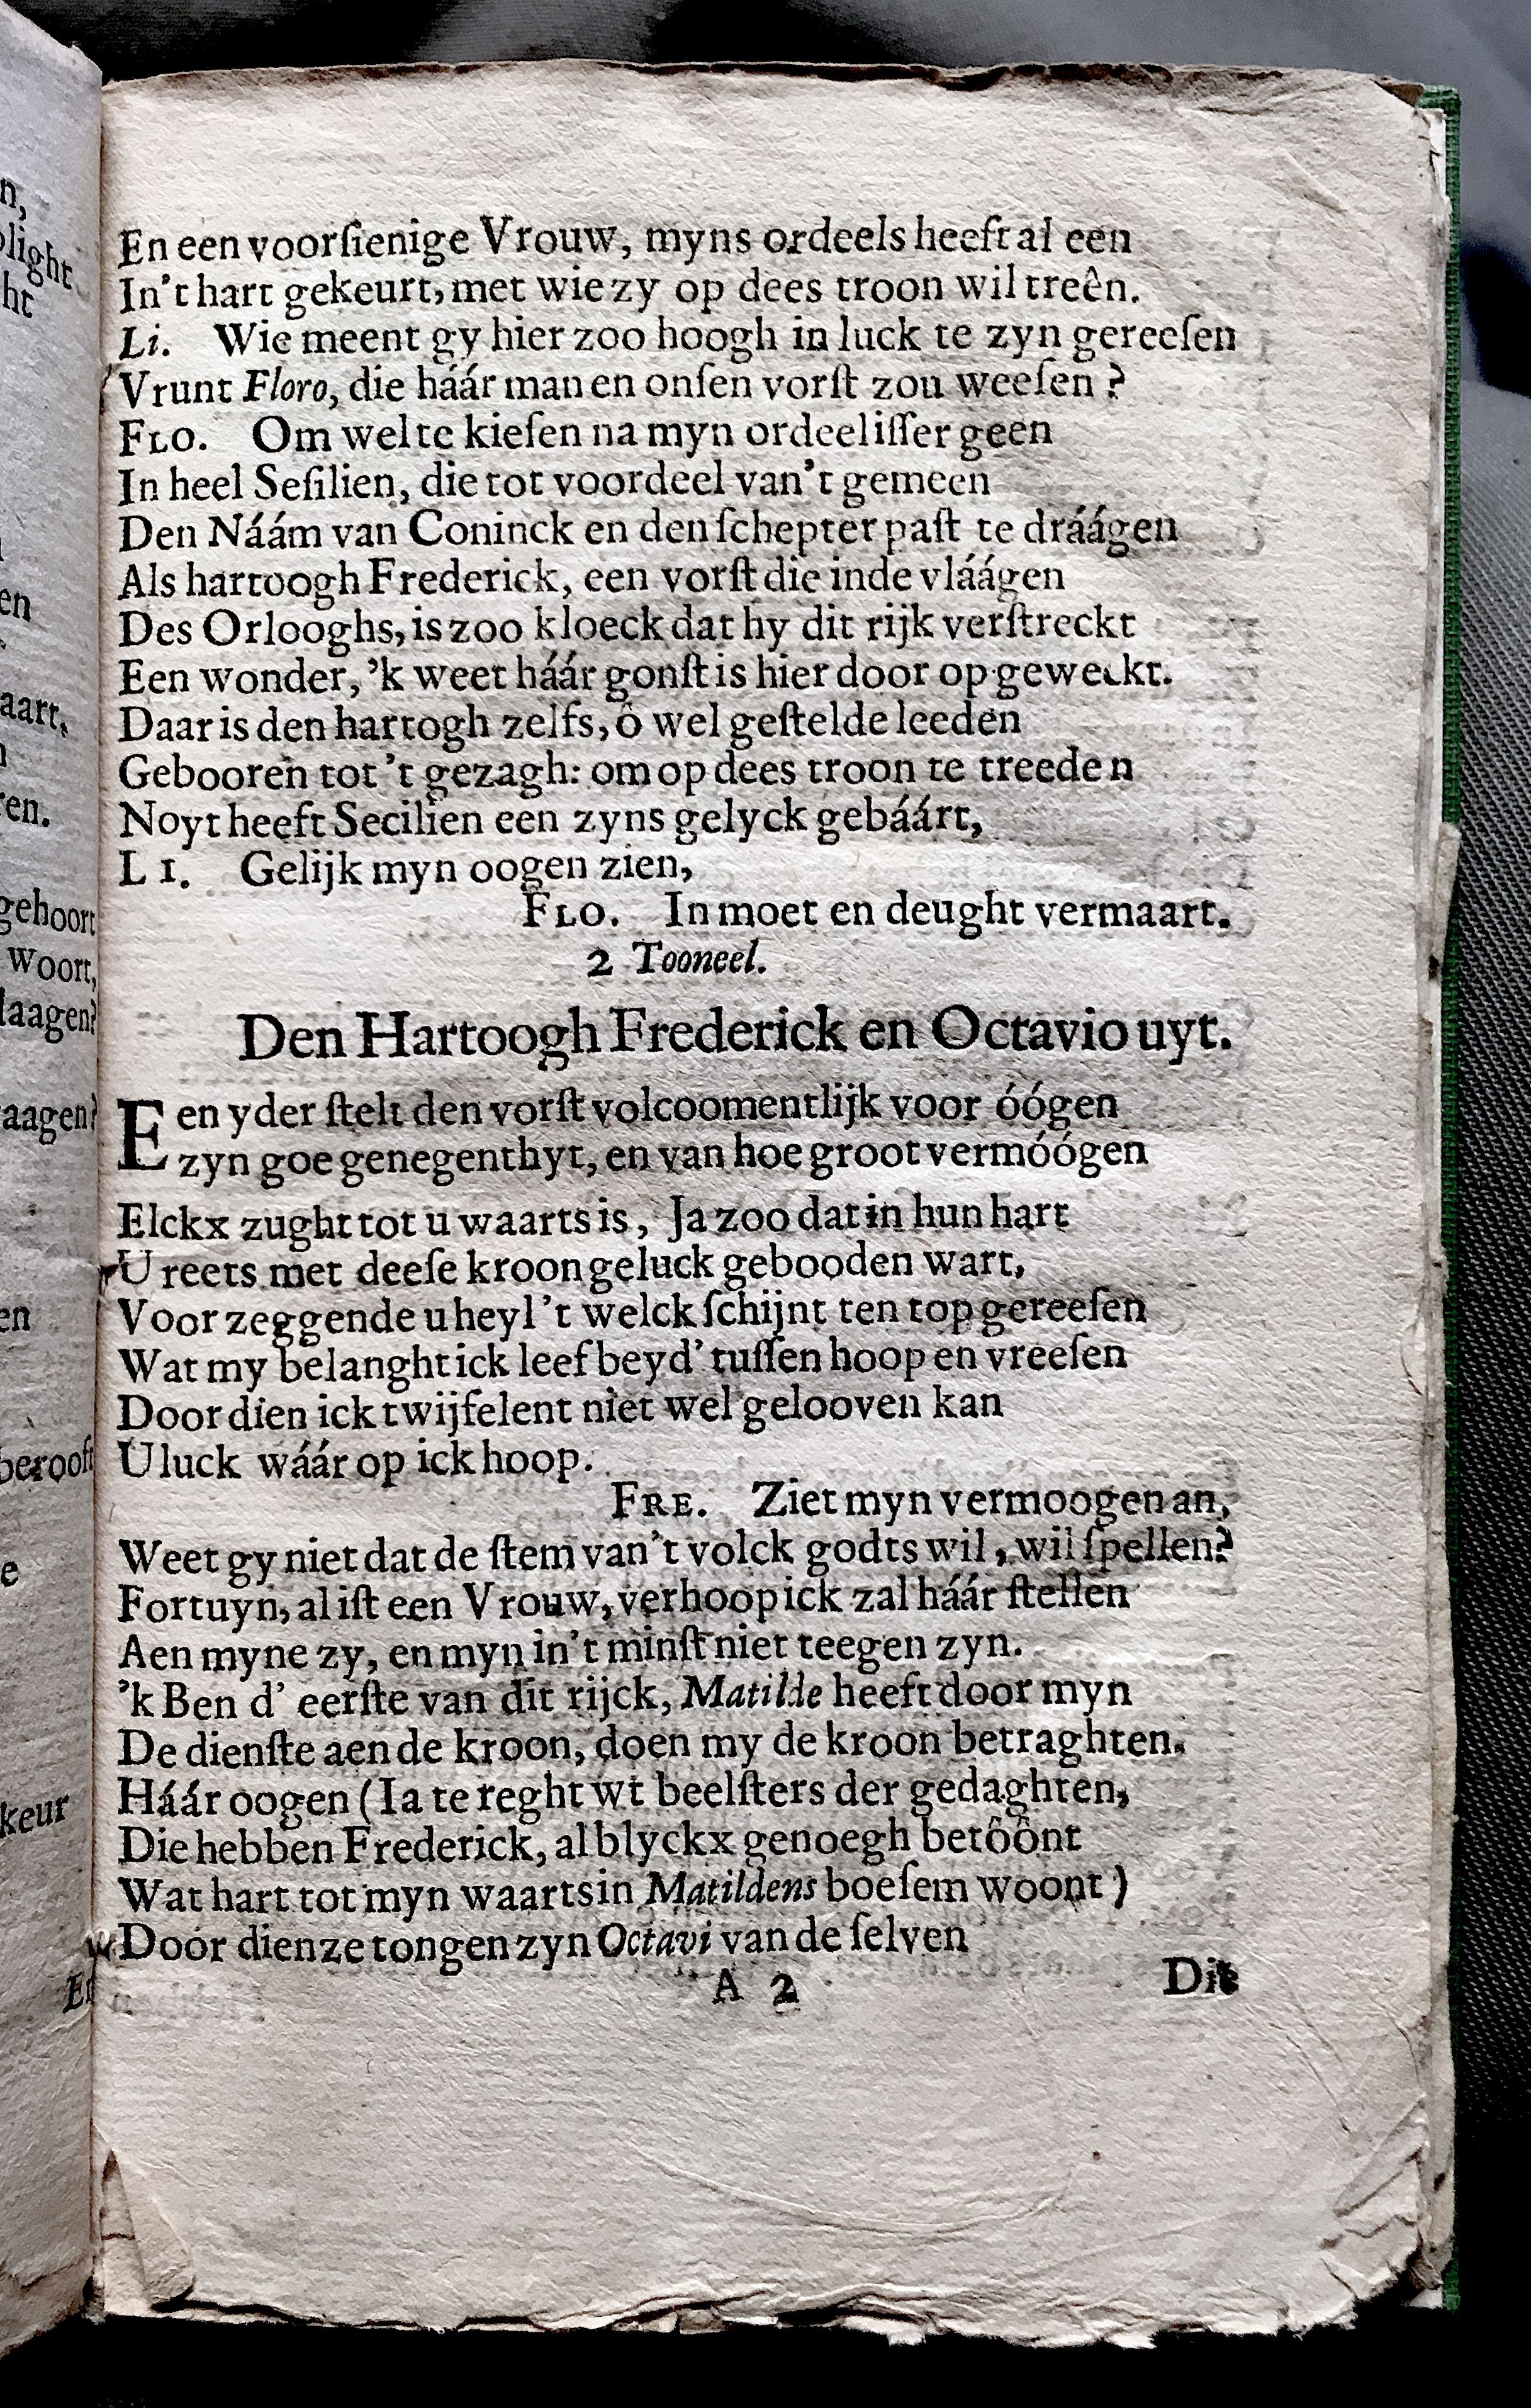 En een voorſienige Vrouw, myns ordeels heeft al een
In't hart gekeurt, met wie zy op dees troon wil treên.
Li. Wie meent gy hier zoo hoogh in luck te zyn gereeſen
Vrunt Floro, die háár man en onſen vorſt zou weeſen?
FLO. Om wel te kieſen na myn ordeel iſſer geen
In heel Seſilien, die tot voordeel van't gemeen
Den Náám van Coninck en den ſchepter paſt te dráágen
Als hartoogh Frederick, een vorſt die inde vláágen
Des Orlooghs, is zoo kloeck dat hy dit rijk verſtreckt
Een wonder, 'k weet háár gonſt is hier door op geweckt.
Daar is den hartogh zelfs, ô wel geſtelde leeden
Gebooren tot 't gezagh: om op dees troon te treeden
Noyt heeft Secilien een zyns gelyck gebáárt,
LI. Gelijk myn oogen zien,
FLO. In moet en deught vermaart.
2 Tooneel.
Den Hartoogh Frederick en Octavio uyt.
Een yder ſtelt den vorſt volcoomentlijk voor óógen
zyn goe genegenthyt, en van hoe groot vermóógen
Elckx zught tot u waarts is, Ja zoo dat in hun hart
U reets met deeſe kroon geluck gebooden wart,
Voor zeggende u heyl 't welck ſchijnt ten top gereeſen
Wat my belanght ick leef beyd' tuſſen hoop en vreeſen
Door dien ick twijfelent niet wel gelooven kan
U luck wáár op ick hoop.
FRE. Ziet myn vermoogen an,
Weet gy niet dat de ſtem van't volck godts wil, wil ſpellen?
Fortuyn, al iſt een Vrouw, verhoop ick zal háár ſtellen
Aen myne zy, en myn in't minſt niet teegen zyn.
'k Ben d' eerſte van dit rijck, Matilde heeft door myn
De dienſte aen de kroon, doen my de kroon betraghten.
Háár oogen (Ia te reght wt beelſters der gedaghten,
Die hebben Frederick, al blyckx genoegh betôônt
Wat hart tot myn waarts in Matildens boeſem woont)
Door dien ze tongen zyn Octavi van de ſelven
A 2 Dit